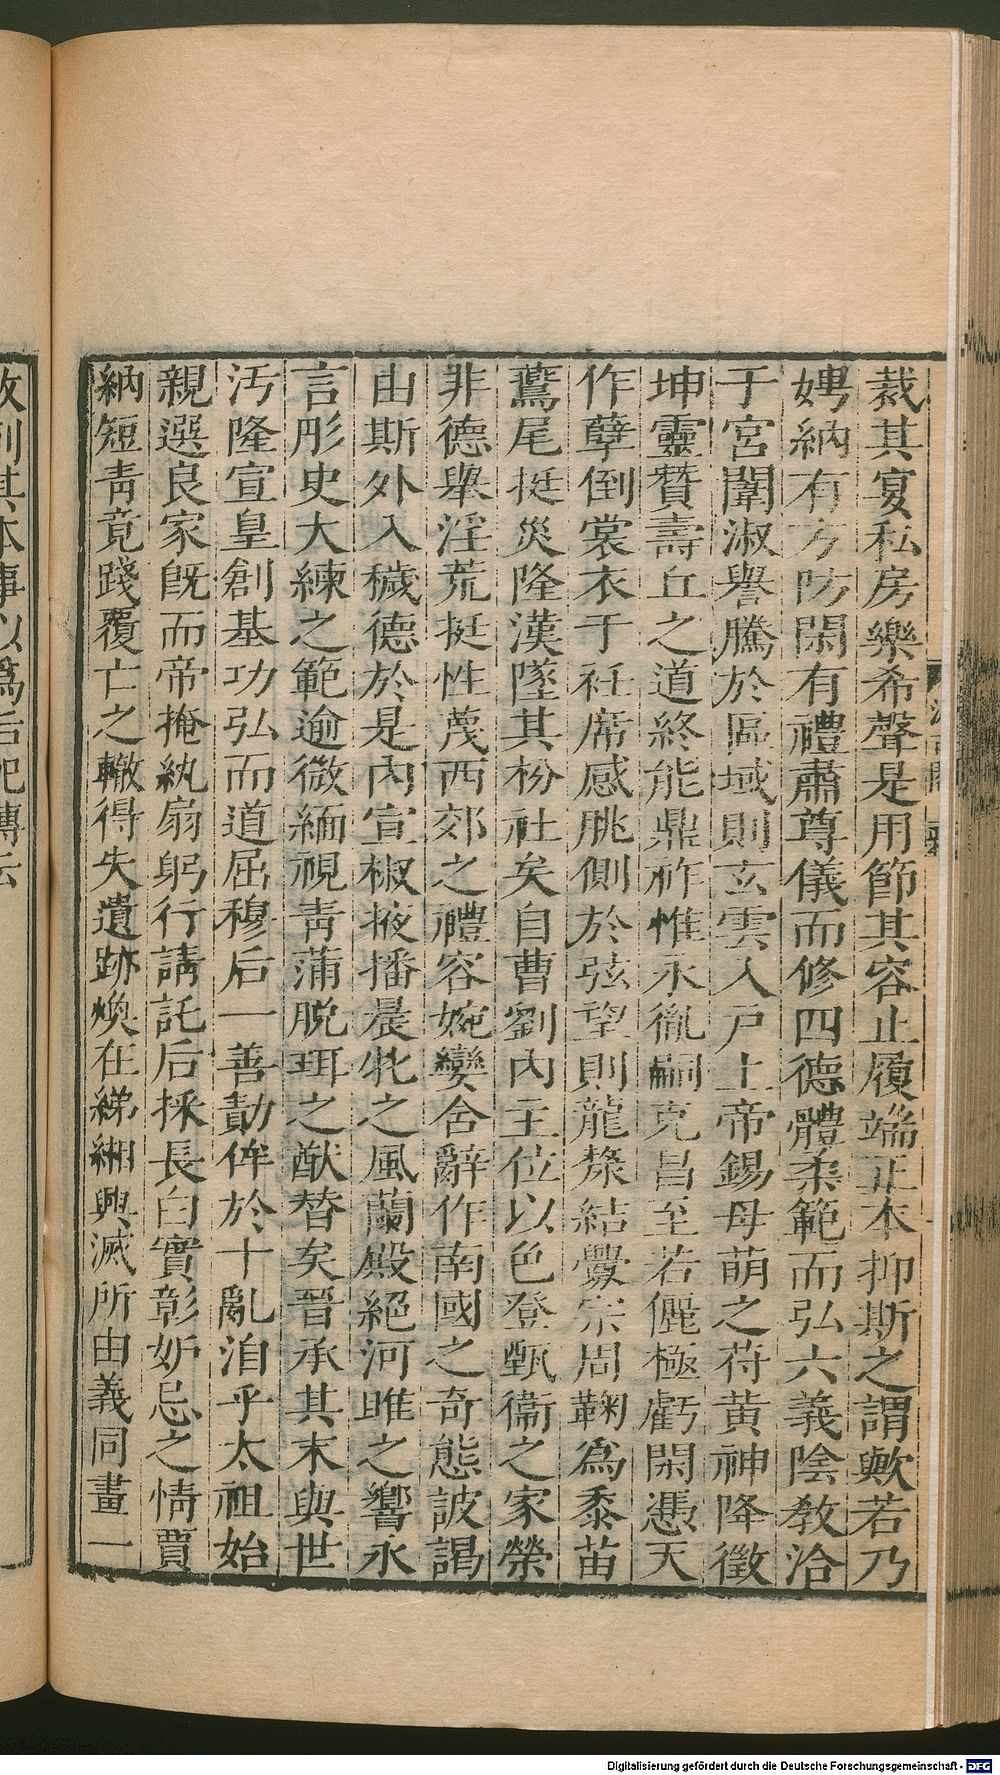 裁其宴私房樂希聲是用節其容止履端正本抑斯之謂歟若乃
娉納有方防閑有禮肅尊儀而修四德體柔範而弘六義陰教洽
于宮闈淑譽騰於區域則玄雲入戸上帝錫母萌之符黃神降徵
坤靈贊壽丘之道終能鼎祚惟永胤嗣克昌至若儷極虧閑憑天
作孽倒裳衣于衽席感朓側於弦望則龍漦結釁宗周鞠爲黍苗
鷰尾挺災隆漢墜其枌社矣自曹劉內主位以色登甄衞之家榮
非德舉淫荒挺性蔑西郊之禮容婉孌含辭作南國之奇態詖謁
由斯外入穢德於是內宣椒掖播晨牝之風蘭殿絕河雎之響永
言彤史大練之範逾微緬視靑蒲脫珥之猷替矣晉承其末與世
汚隆宣皇創基功弘而道屈穆后一善勣侔於十亂洎乎太祖始
親選良家旣而帝掩紈扇躬行請託后採長白實彰妒忌之情賈
納短靑竟踐覆亡之轍得失遺跡煥在綈緗興滅所由義同畫一
故列其本事以爲后妃傳云
Digitalisierung gefördert durch die Deutsche Forschungsgemeinschaft - DFG